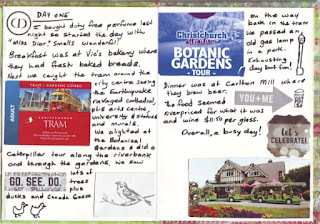 DAY ONE
I bought duty free perfume last
night so started the day with
"Miss Dior". Smells wonderful!
Breakfast was at Vic's bakery where
they had fresh baked breads.
Next we caught the tram around the
city centre seeing
the Earthquake
ravaged cathedral,
the arts centre,
university & statues
and murals.
We alighted at
the Botanical
Gardens & did a
Caterpillar tour along the riverbank
and through the gardens. We saw
lots of
trees
plus
ducks and Canada Geese
CD
TRAM | GARDENS COMBO
ADULT
CHRISTCHURCH
TRAM
GO. SEE. DO.
Christchurch
BOTANIC
GARDENS
- TOUR -
On the way
back in the tram
we passed an
old gas lamp
in a park.
Exhausting
day but fun!
Dinner was at Carlton Mill where
they brew beer.
The food seemed
overpriced for what it was
and wine $11.50 per glass.
Overall, a busy day!
YOU+ME
let's
CELEBRATE!